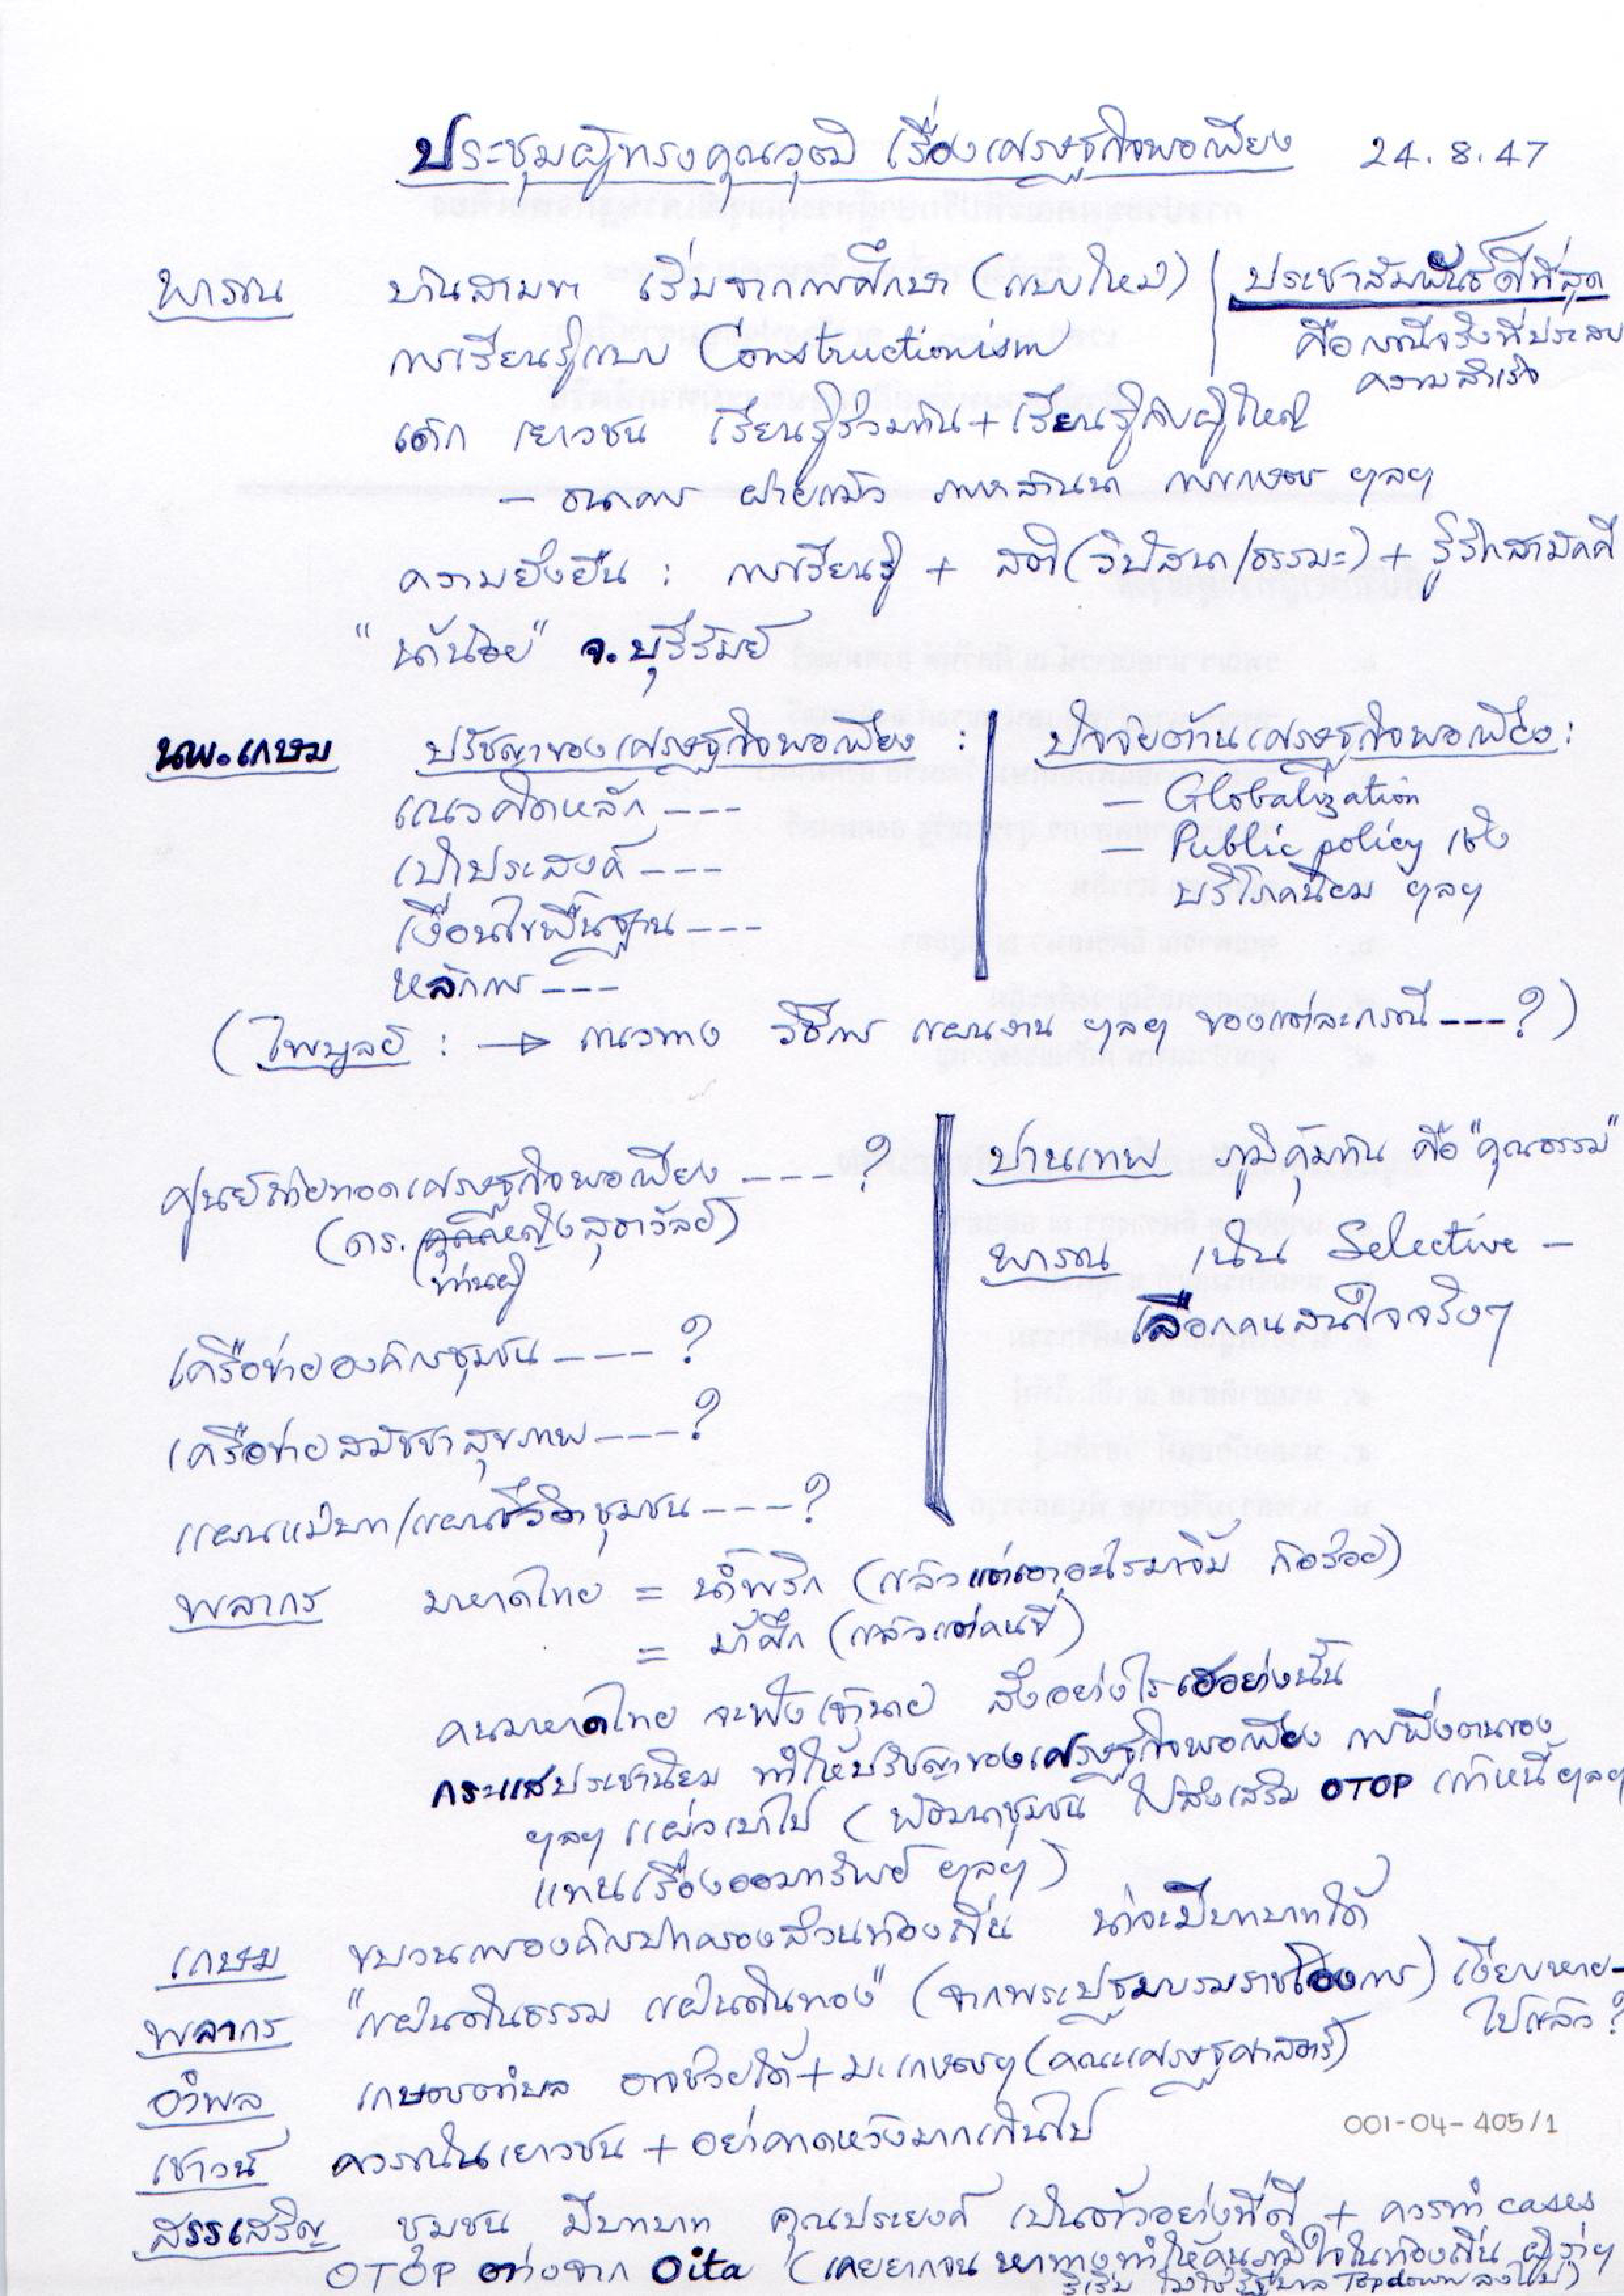 ประชุมผู้ทรงคุณวุฒิ เรื่องเศรษฐกิจพอเพียง 24.8.47
พารณ บ้านสามขา เริ่มจากการศึกษา (แบบใหม่)
การเรียนรู้แบบ Constructionism
ประชาสัมพันธ์ดีที่สุด
คือกรณีจริงที่ประสบ
ความสำเร็จ
เด็ก เยาวชน เรียนรู้ร่วมกัน + เรียนรู้กับผู้ใหญ่
– ธนาคาร ฝายแม้ว ภาษาล้านนา การเกษตร ฯลฯ
ความยั่งยืน : การเรียนรู้ + สติ (วิปัสนา/ธรรมะ) + รู้รักสามัคคี
"น้าน้อย" จ.บุรีรัมย์
นพ.เกษม ปรัชญาของเศรษฐกิจพอเพียง :
แนวคิดหลัก ---
เป้าประสงค์ ---
เงื่อนไขพื้นฐาน ---
หลักการ ---
ปัจจัยต้านเศรษฐกิจพอเพียง :
– Globalization
– Public policy เชิง
บริโภคนิยม ฯลฯ
(ไพบูลย์ : → แนวทาง วิธีการ แผนงาน ฯลฯ ของแต่ละกรณี ---?)
ศูนย์ถ่ายทอดเศรษฐกิจพอเพียง ----?
(ดร. คุณหญิงสุธาวัลย์)
(ท่านผู้
เครือข่ายองค์กรชุมชน ----?
เครือข่ายสมัชชาสุขภาพ ----?
แผนแม่บท/แผนชีวิตชุมชน ----?
ปานเทพ ภูมิคุ้มกัน คือ "คุณธรรม"
พารณ เน้น Selective –
เลือกคนสนใจจริงๆ
พลากร มหาดไทย = น้ำพริก (แล้วแต่เอาอะไรมาจิ้ม ก็อร่อย)
= ม้าศึก (แล้วแต่คนขี่)
คนมหาดไทย จะฟังเจ้านาย สั่งอย่างไรเอาอย่างนั้น
กระแสประชานิยม ทำให้ปรัชญาของเศรษฐกิจพอเพียง การพึ่งตนเอง
ฯลฯ แผ่วเบาไป (พัฒนาชุมชน ไปส่งเสริม OTOP แก้หนี้ ฯลฯ
แทนเรื่องออมทรัพย์ ฯลฯ)
เกษม ขบวนการองค์กรปกครองส่วนท้องถิ่น น่าจะมีบทบาทได้
พลากร "แผ่นดินธรรม แผ่นดินทอง" (จากพระปฐมบรมราชโองการ) เงียบหาย-
ไปแล้ว?
อำพล เกษตรตำบล อาจช่วยได้ + ม.เกษตรฯ (คณะเศรษฐศาสตร์)
เชาวน์ ควรเน้นเยาวชน + อย่าคาดหวังมากเกินไป
001-04-405/1
สรรเสริญ ชุมชน มีบทบาท คุณประยงค์ เป็นตัวอย่างที่ดี + ควรทำ cases
OTOP ต่างจาก Oita (เคยยากจน หาทางทำให้คนภูมิใจในท้องถิ่น ผู้ว่าฯ
ริเริ่ม ไม่ใช่รัฐบาล Topdown ลงไป)